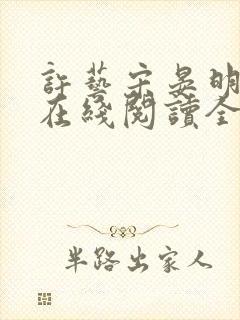 許藝宋晏明
在綫閱讀全
半路出家人